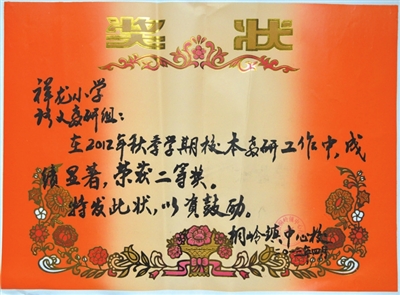 奖状
祥龙小学
语文教研组:
在2012年秋季学期校本教研工作中,成
绩显著,荣获二等奖。
特发此状,以资鼓励。
桐岭镇中心校
二〇一三年四月